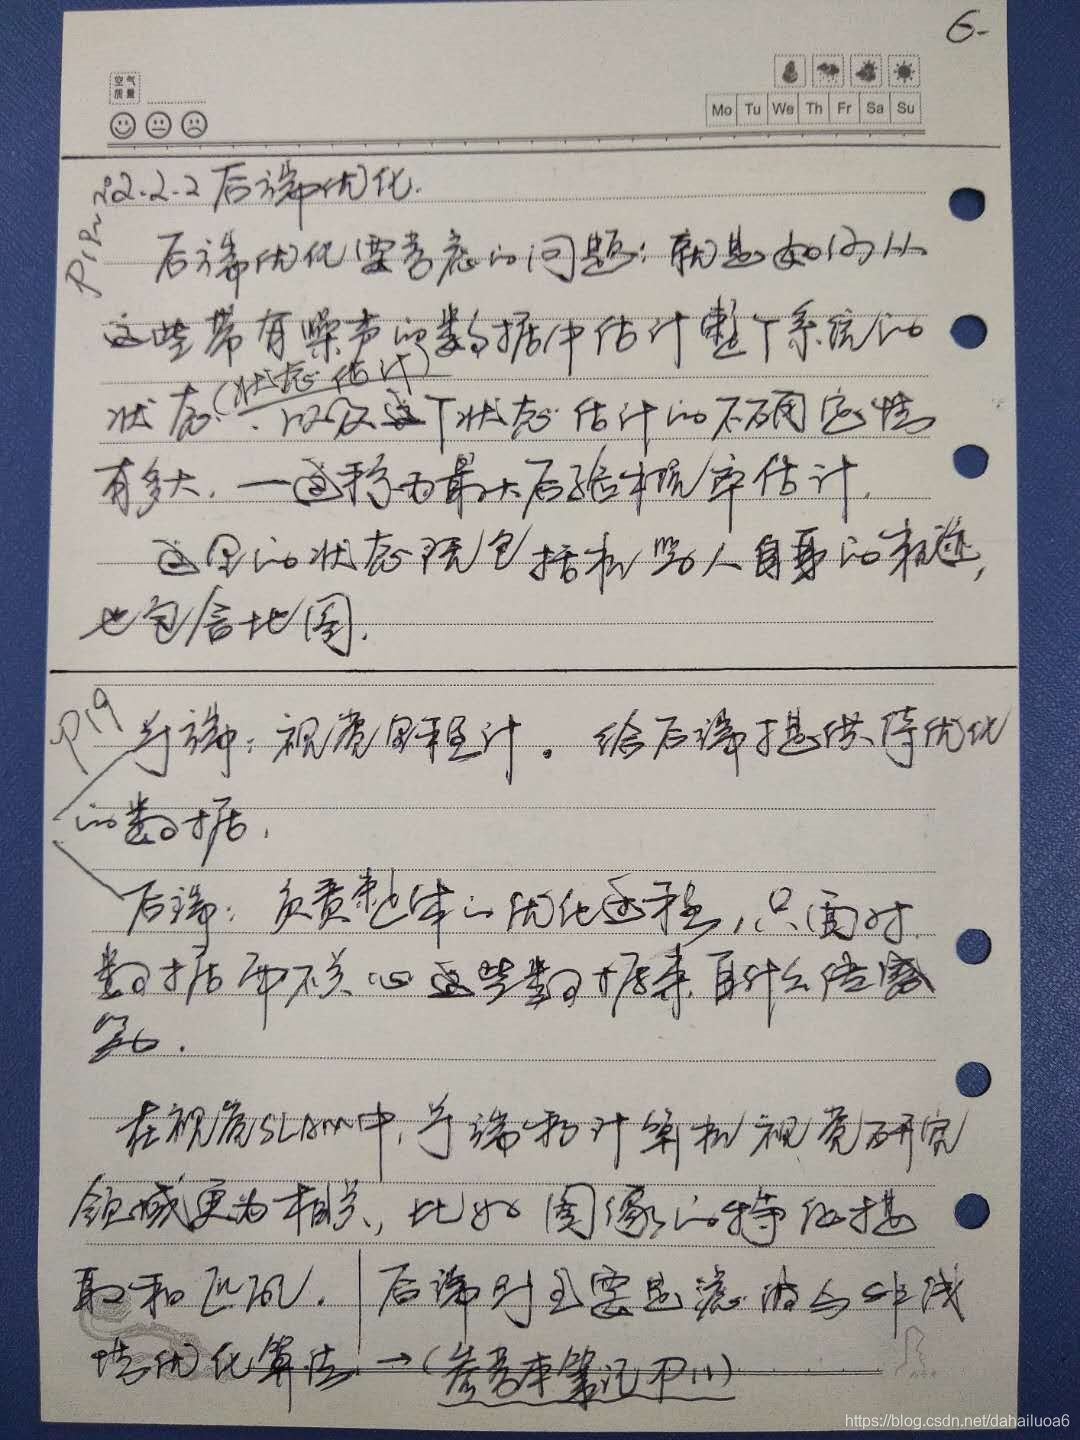 6-
空气
质量
Mo Tu We Th Fr Sa Su
P18~
2.2.2 后端优化.
后端优化要考虑的问题：就是如何从
这些带有噪声的数据中估计整个系统的
(状态估计)
状态，以及这个状态估计的不确定性
有多大. —这称为最大后验概率估计.
这里的状态既包括机器人自身的轨迹,
也包含地图.
P19
前端：视觉里程计。给后端提供待优化
的数据.
后端：负责整体的优化过程, 只面对
数据而不关心这些数据来自什么传感
器.
在视觉SLAM中, 前端和计算机视觉研究
领域更为相关, 比如图像的特征提
取和匹配. 后端则主要是滤波与非线
性优化算法 → (参考本笔记P11)
https://blog.csdn.net/dahailuoa6